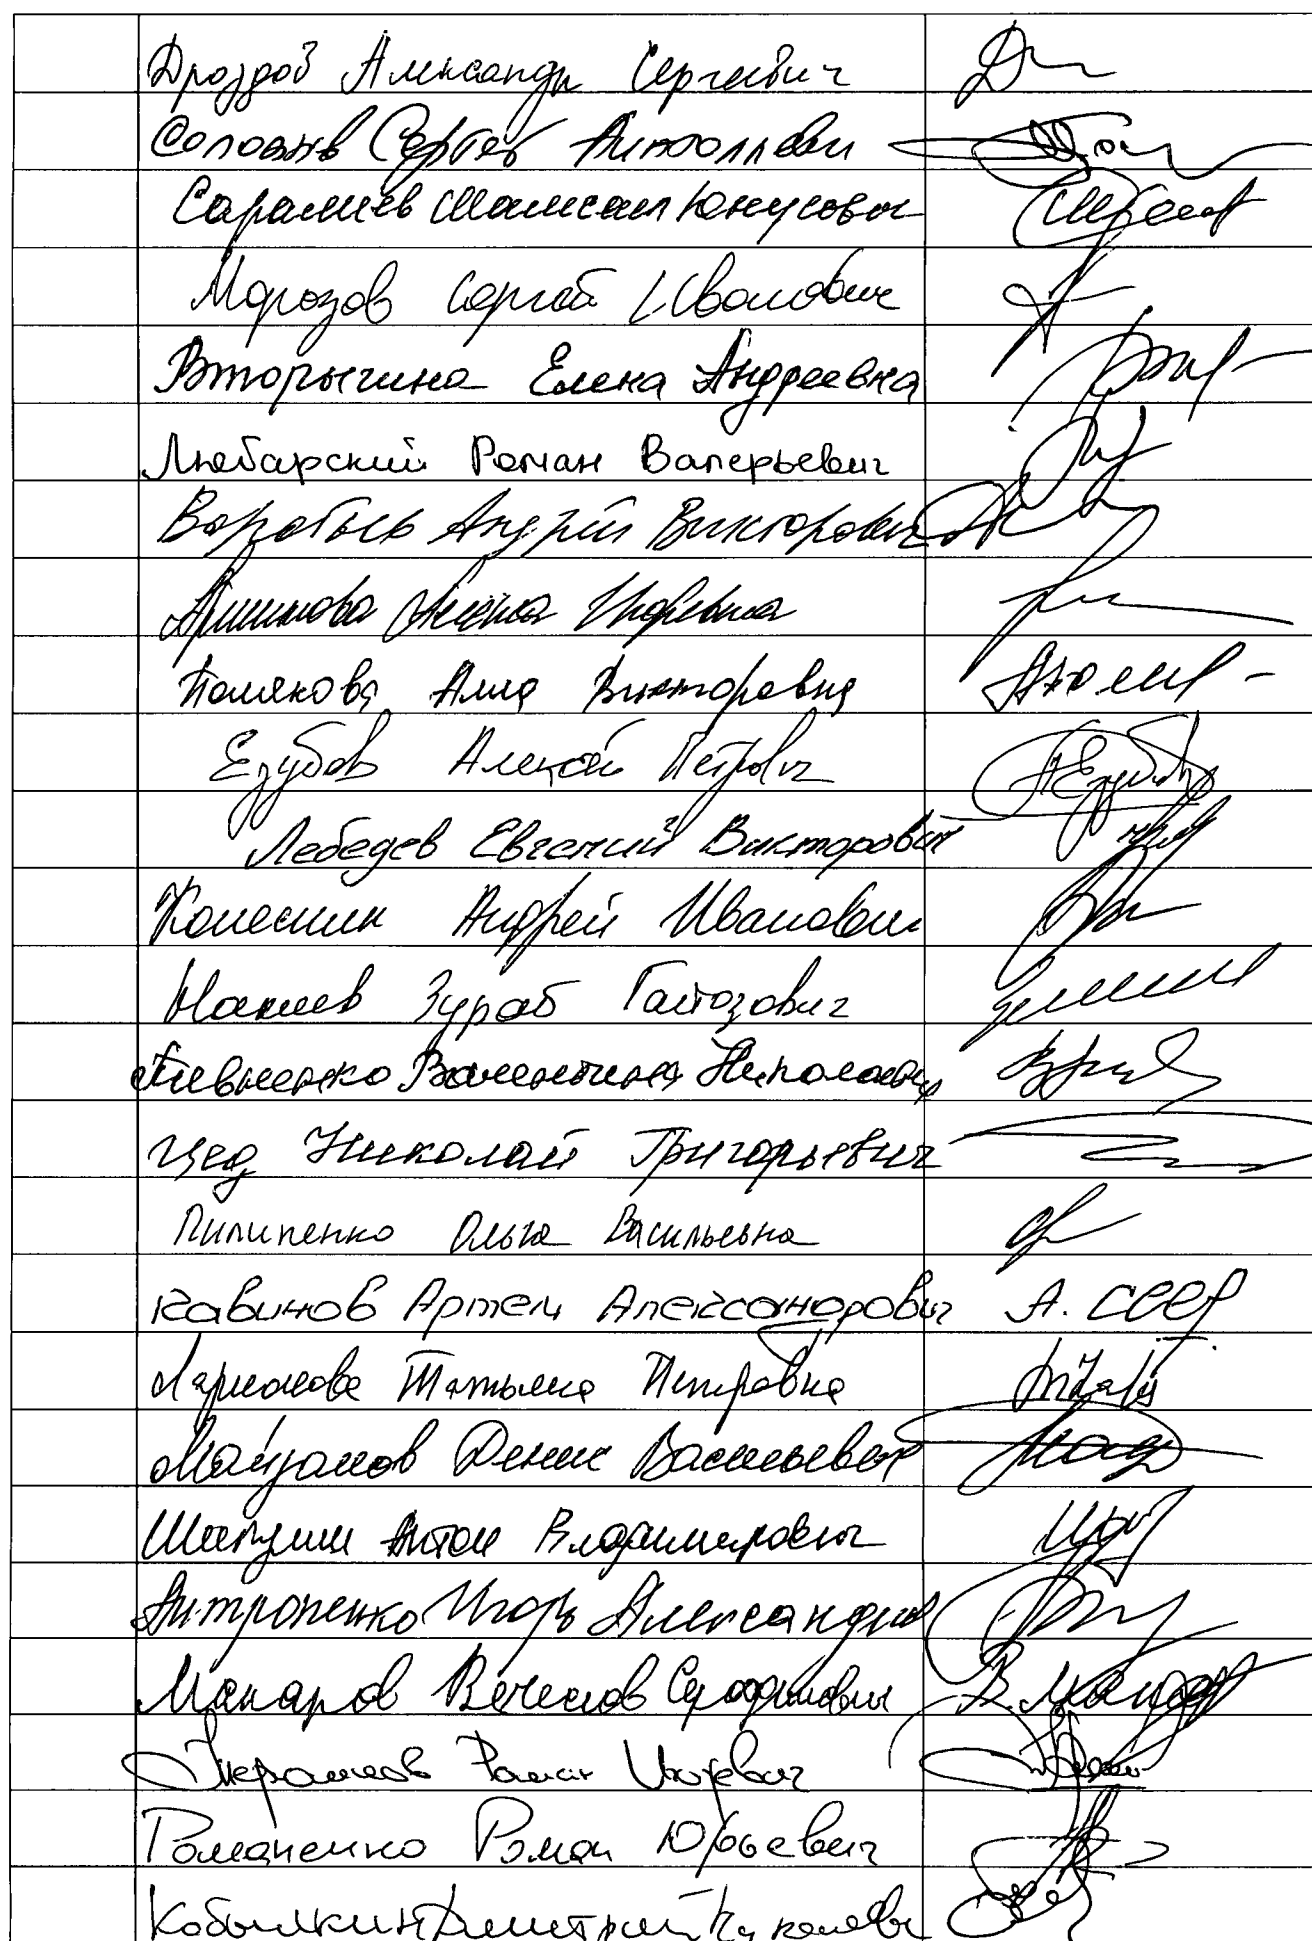 Дроздов Александр Сергеевич
Соловьев Сергей Анатольевич
Саралиев Шамсаил Юнусович
Морозов Сергей Иванович
Вторыгина Елена Андреевна
Любарский Роман Валерьевич
Воробьев Андрей Викторович
Аршинова Алена Игоревна
Полякова Алла Викторовна
Езубов Алексей Петрович
Лебедев Евгений Викторович
Колесник Андрей Иванович
Макиев Зураб Гайозович
Пивненко Валентина Николаевна
Цед Николай Григорьевич
Пилипенко Ольга Васильевна
Кавинов Артем Александрович А.
Ларионова Татьяна Петровна
Майданов Денис Васильевич
Шипулин Антон Владимирович
Антропенко Игорь Александрович
Макаров Вячеслав Серафимович
Роман Игоревич
Романенко Роман Юрьевич
Кобылкин Дмитрий Николаевич